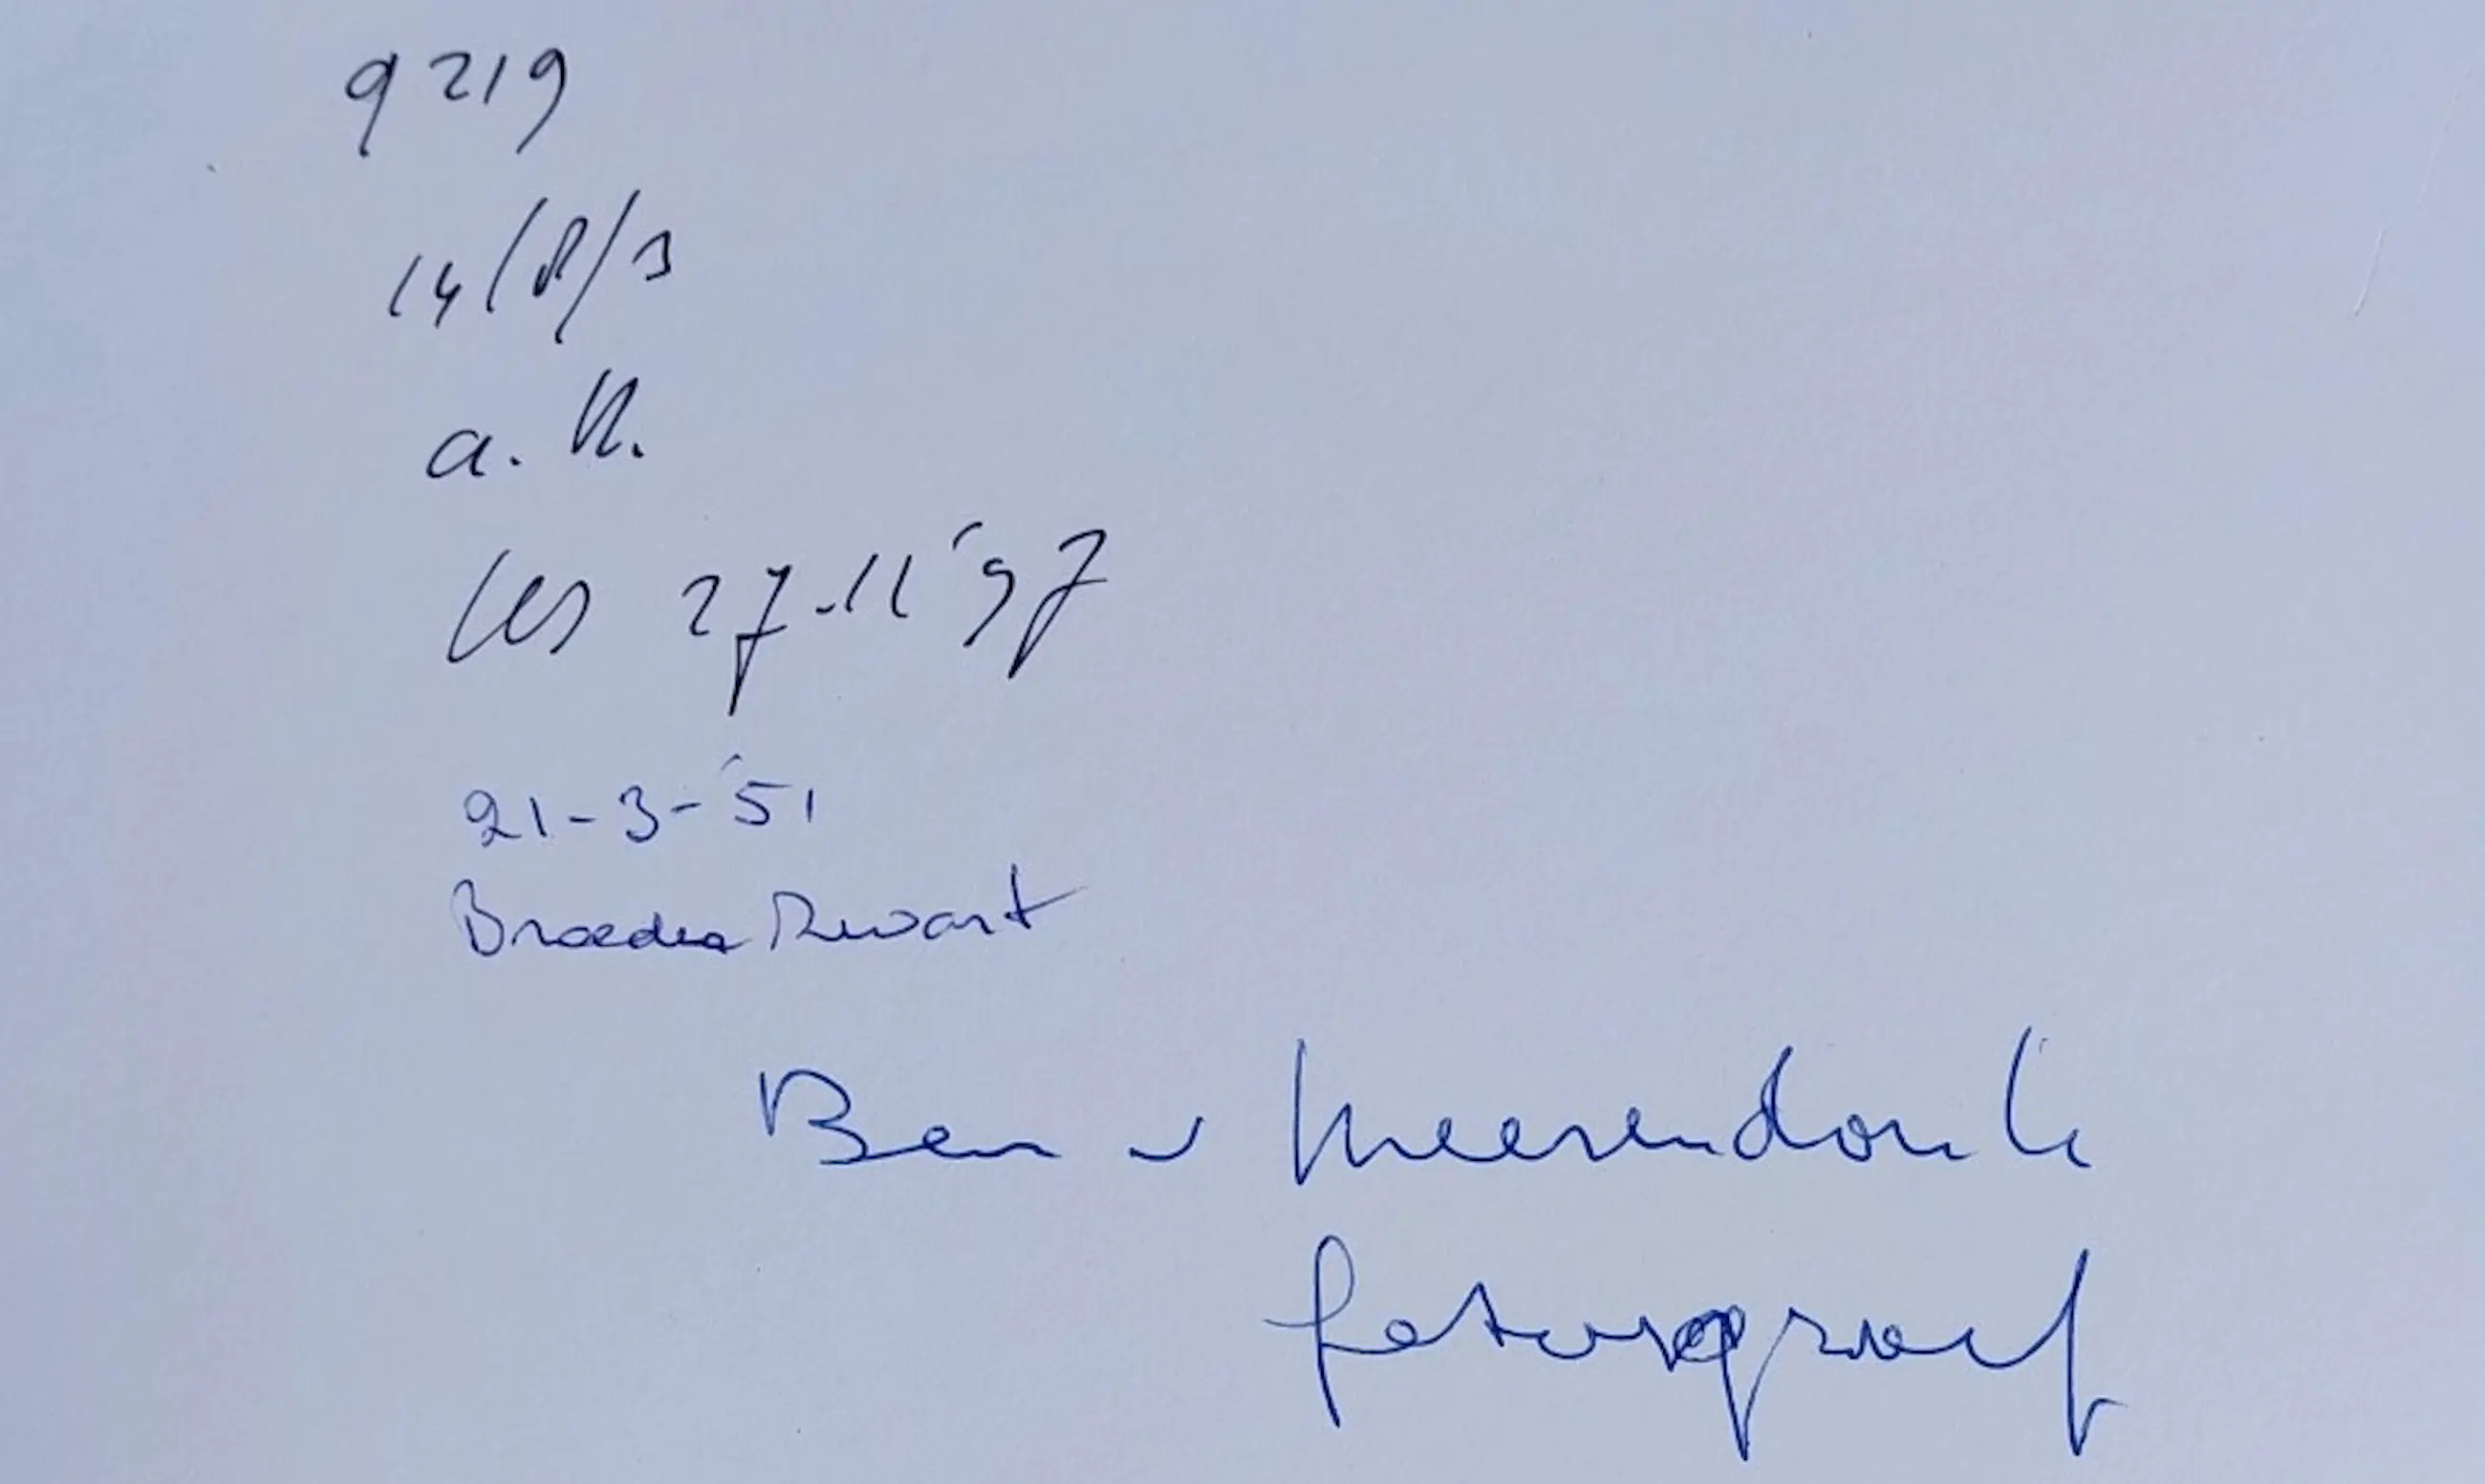 9219
14/8/3
a. K.
27-11 '97
21-3-'51
Broeder
Ben v Meerendonk
fotograaf